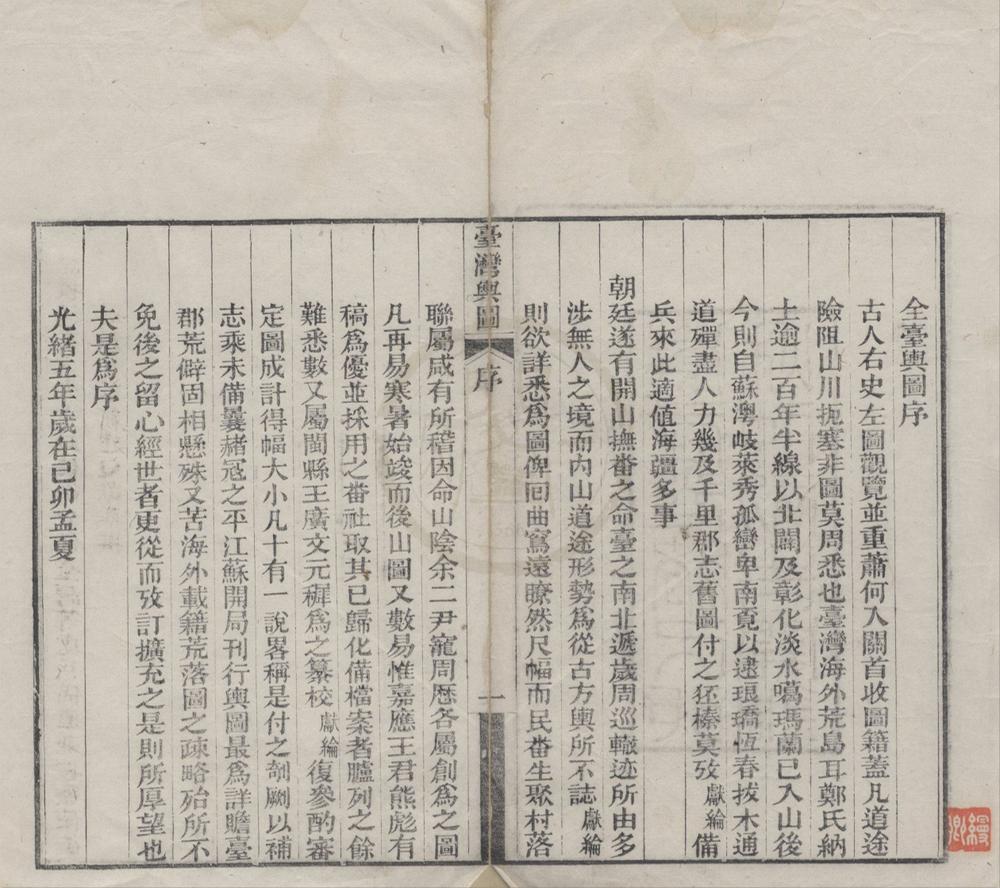 全臺輿圖序
古人右史左圖觀覽並重蕭何入關首收圖籍蓋凡道途
險阻山川扼塞非圖莫周悉也臺灣海外荒島耳鄭氏納
土逾二百年半線以北闢及彰化淡水噶瑪蘭已入山後
今則自蘇澳岐萊秀孤巒卑南覓以逮琅𤩝恆春拔木通
道殫盡人力幾及千里郡志舊圖付之狉榛莫攷獻綸備
兵來此適值海疆多事
朝廷遂有開山撫番之命臺之南北遞歲周巡轍迹所由多
涉無人之境而內山道途形勢為從古方輿所不誌獻綸
則欲詳悉為圖俾囘曲寫遠瞭然尺幅而民番生聚村落
臺灣輿圖
序
一
聯屬咸有所稽因命山陰余二尹寵周歷各屬創為之圖
凡再易寒暑始竣而後山圖又數易惟嘉應王君熊彪有
稿為優並採用之番社取其已歸化備檔案者臚列之餘
難悉數又屬閩縣王廣文元穉為之纂校獻綸復參酌審
定圖成計得幅大小凡十有一說畧稱是付之剞劂以補
志乘未備曩赭冦之平江蘇開局刊行輿圖最為詳贍臺
郡荒僻固相懸殊又苦海外載籍荒落圖之疎略殆所不
免後之留心經世者更從而攷訂擴充之是則所厚望也
夫是為序
光緒五年歲在己卯孟夏